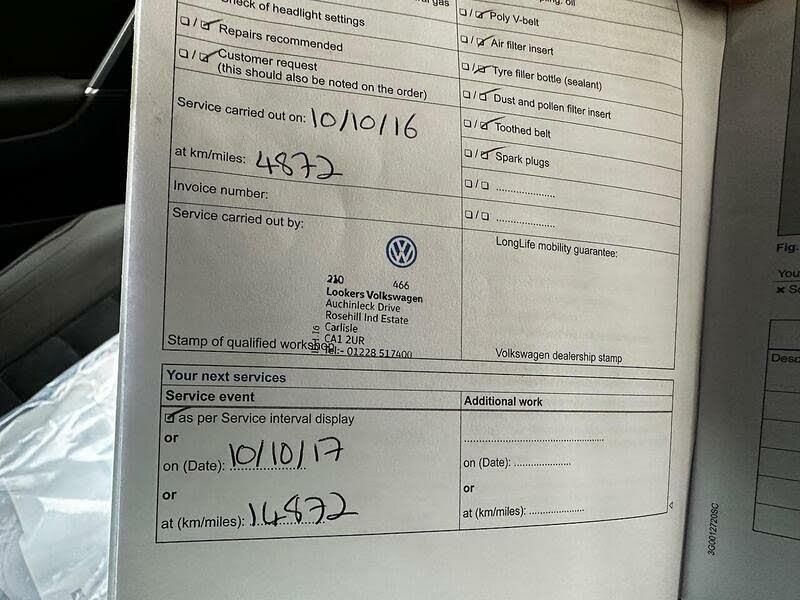 Check of headlight settings
❏ / ☑ Repairs recommended
❏ / ☑ Customer request
(this should also be noted on the order)
Service carried out on: 10/10/16
at km/miles: 4872
Invoice number:
Service carried out by:
210 466
Lookers Volkswagen
Auchinleck Drive
Rosehill Ind Estate
Carlisle
CA1 2UR
Tel:- 01228 517400
Stamp of qualified workshop
gas
oil
❏ / ☑ Poly V-belt
❏ / ☑ Air filter insert
❏ / ☑ Tyre filler bottle (sealant)
❏ / ☑ Dust and pollen filter insert
❏ / ☑ Toothed belt
❏ / ☑ Spark plugs
❏ / ❏ ....................
❏ / ❏ ....................
LongLife mobility guarantee:
Volkswagen dealership stamp
Your next services
Service event
☑ as per Service interval display
or
on (Date): 10/10/17
or
at (km/miles): 14872
Additional work
................................................
on (Date): ...................
or
at (km/miles): ..................
3G0012720SC
Fig.
You
Desc